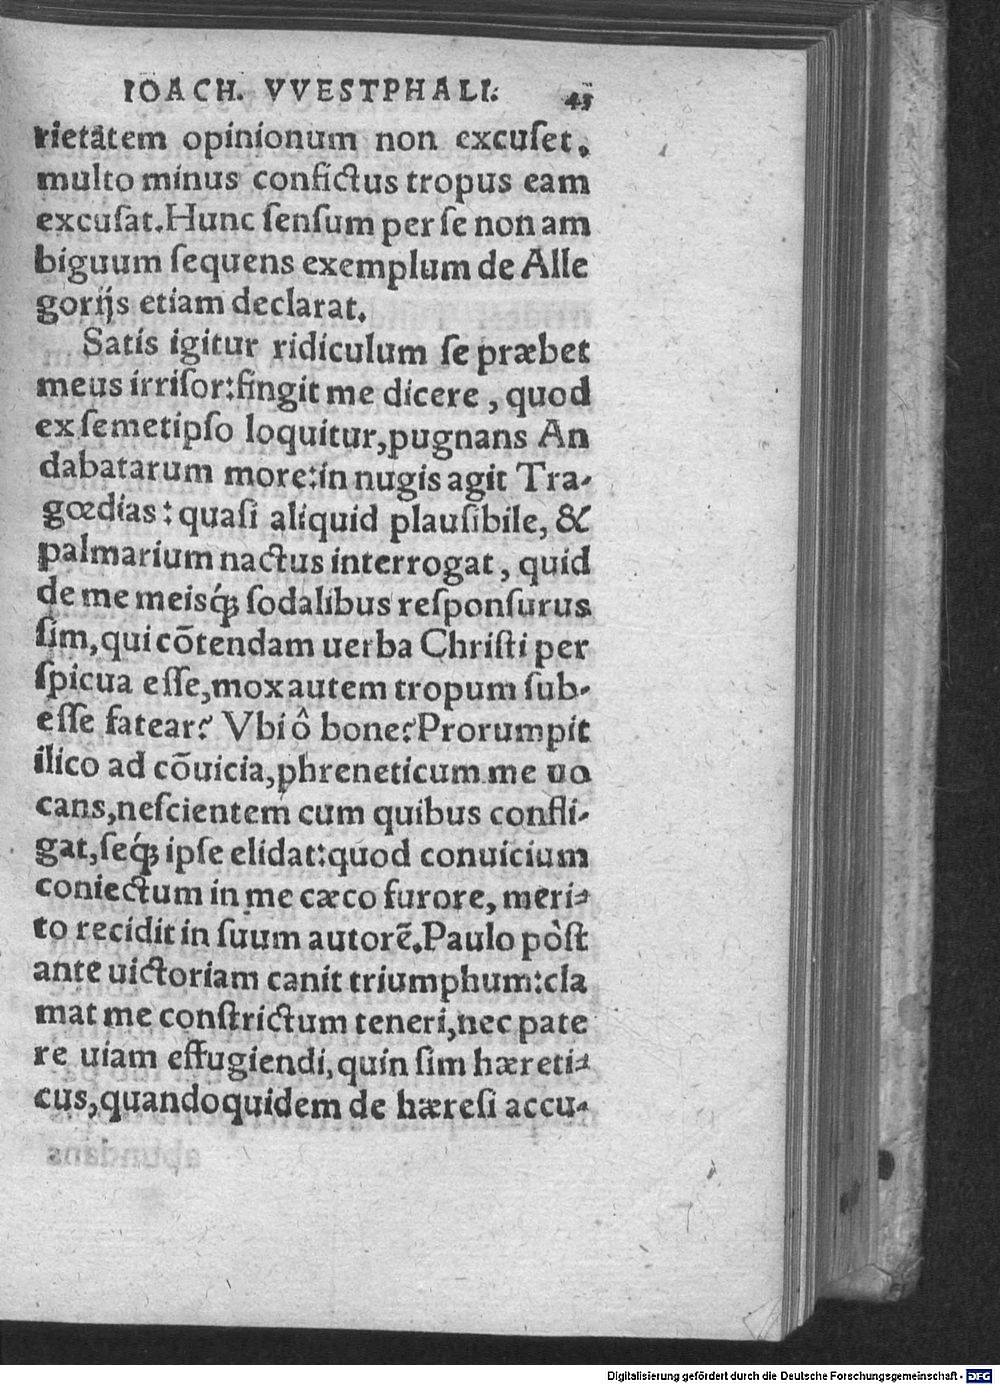 IOACH. VVESTPHALI. 45
rietatem opinionum non excuſet,
multo minus confictus tropus eam
excuſat. Hunc ſenſum per ſe non am
biguum ſequens exemplum de Alle
gorijs etiam declarat.
Satis igitur ridiculum ſe præbet
meus irriſor: fingit me dicere, quod
ex ſemetipſo loquitur, pugnans An
dabatarum more: in nugis agit Tra-
gœdias: quaſi aliquid plauſibile, &
palmarium nactus interrogat, quid
de me meisq́; ſodalibus reſponſurus
ſim, qui cõtendam uerba Chriſti per
ſpicua eſſe, mox autem tropum ſub-
eſſe fatear? Vbi ô bone? Prorumpit
ilico ad cõuicia, phreneticum me uo
cans, neſcientem cum quibus confli-
gat, ſeq́; ipſe elidat: quod conuicium
coniectum in me cæco furore, meri-
to recidit in ſuum autorẽ. Paulo pòſt
ante uictoriam canit triumphum: cla
mat me conſtrictum teneri, nec pate
re uiam effugiendi, quin ſim hæreti-
cus, quandoquidem de hæreſi accu-
Digitalisierung gefördert durch die Deutsche Forschungsgemeinschaft - DFG